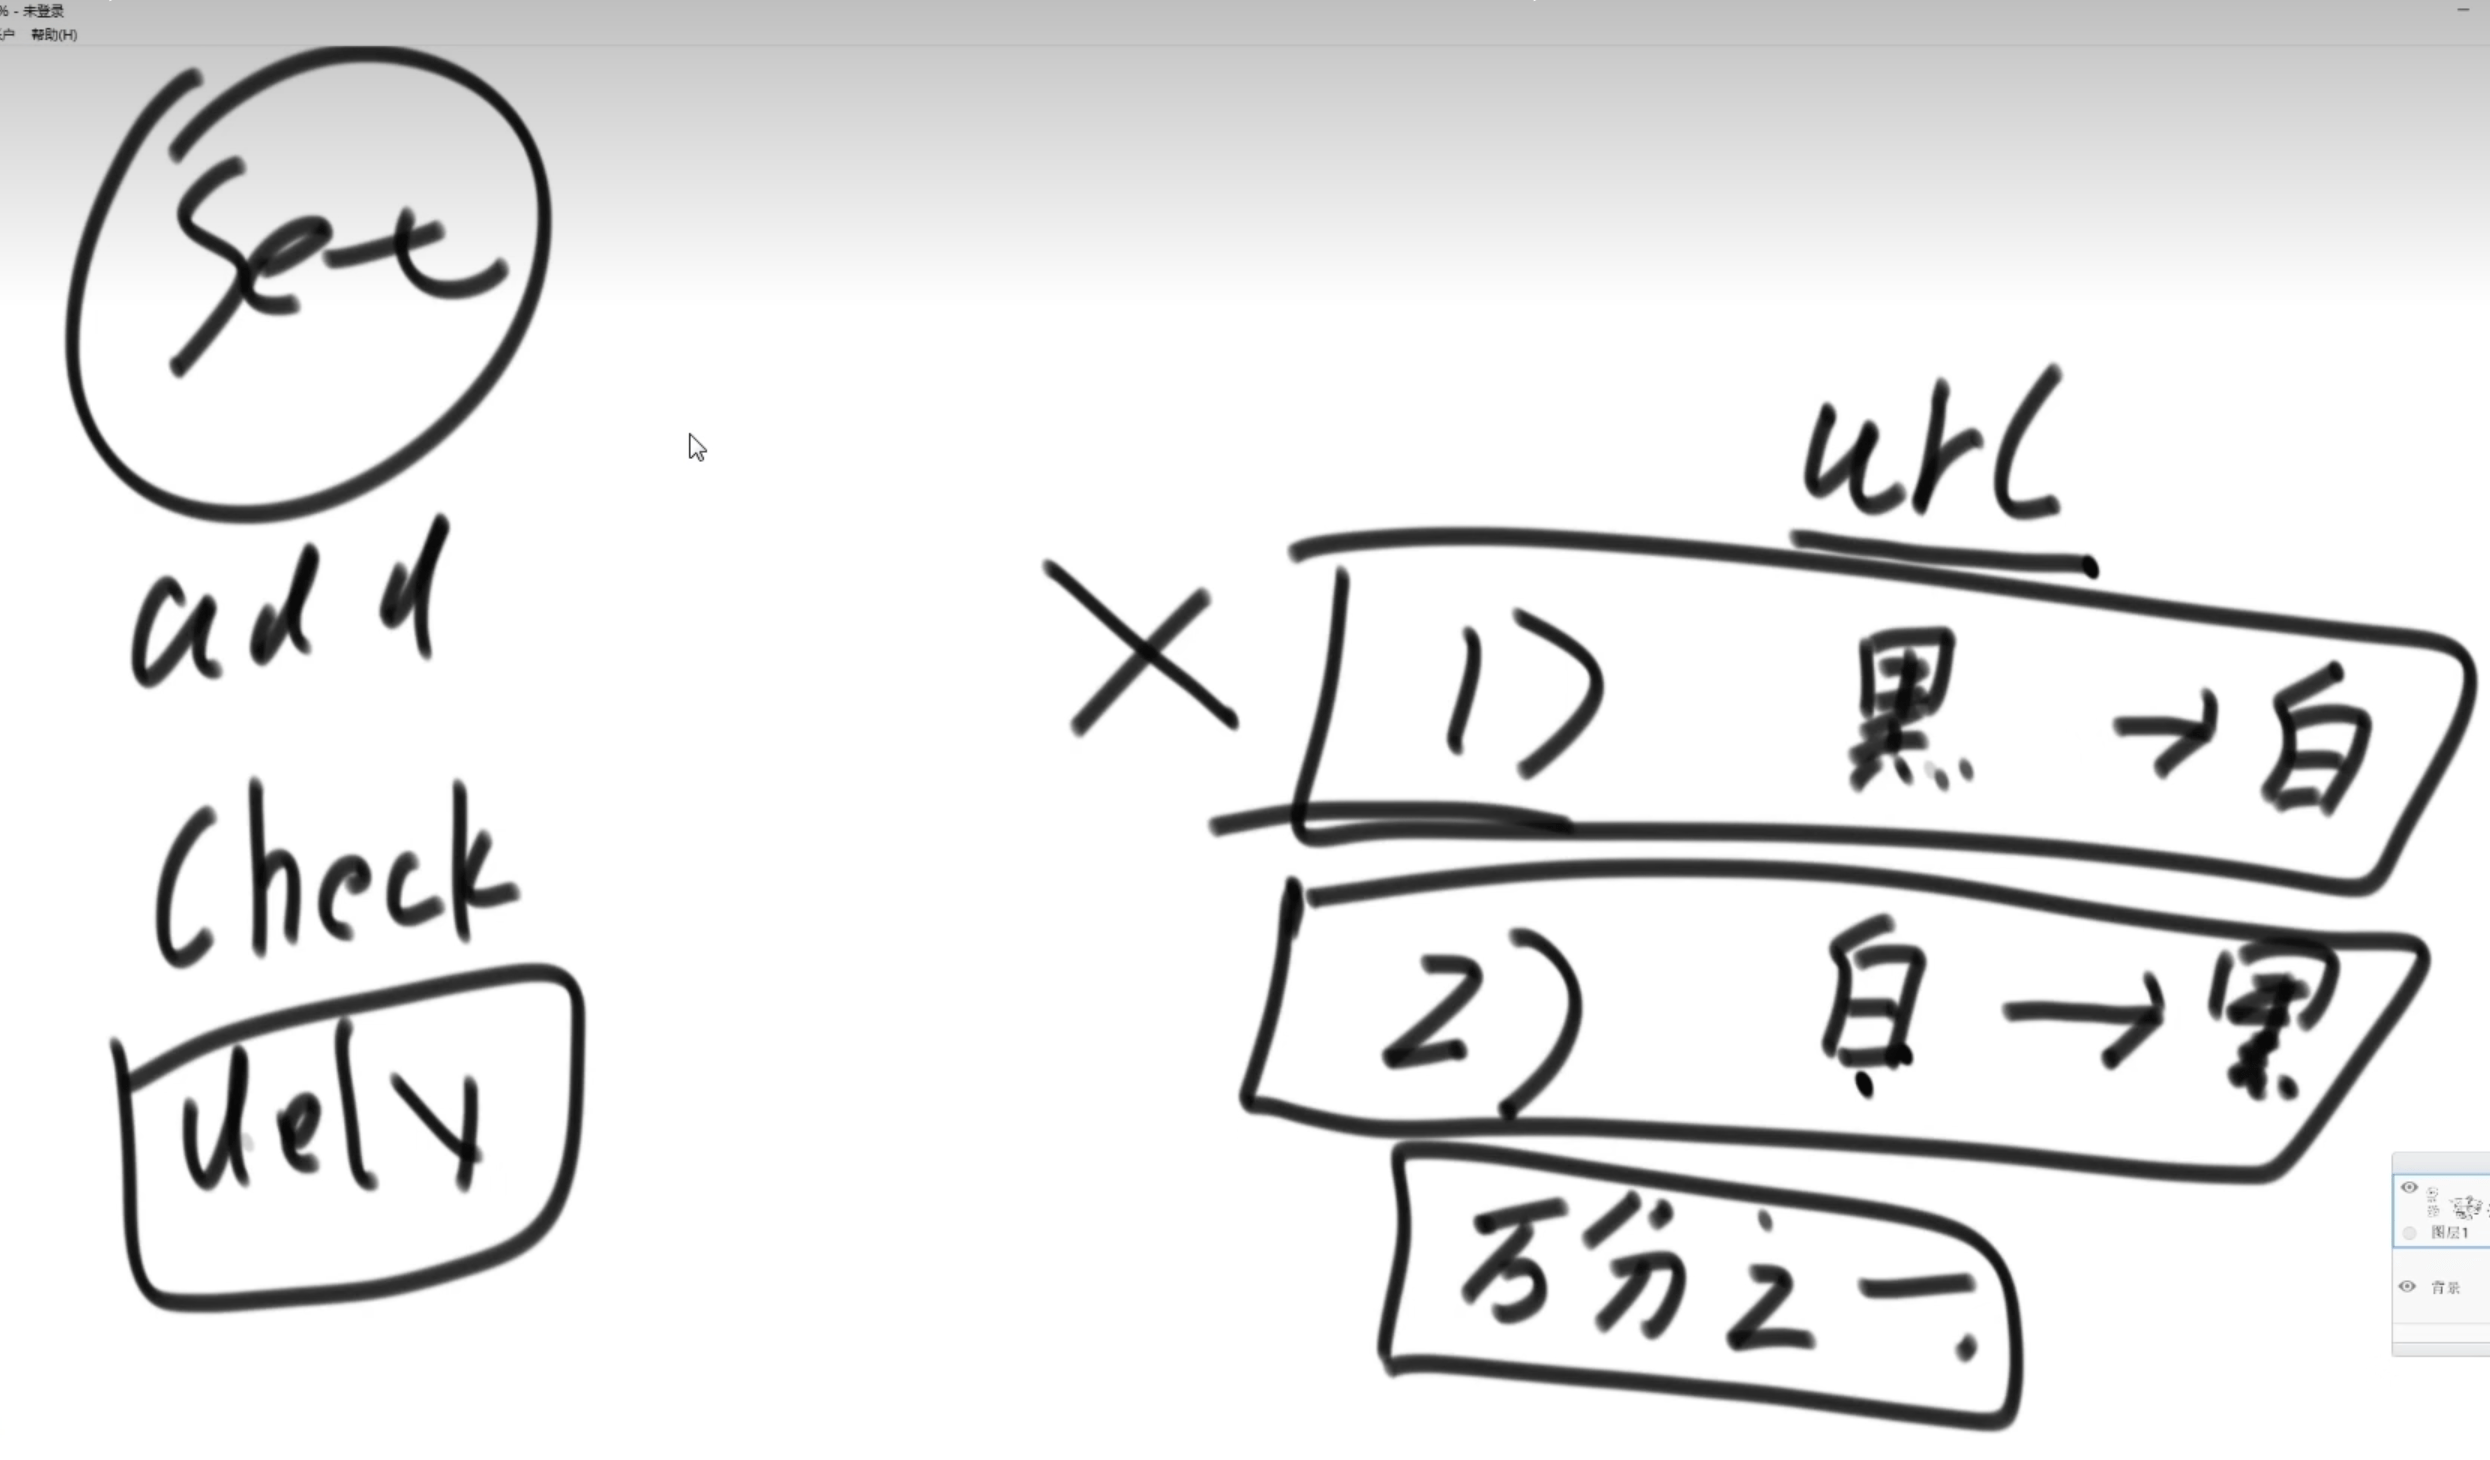 % - 未登录
帮助(H)
Set
add
Check
del X
url
X 1) 黑 → 白
2) 白 → 黑
万分之一.
图层1
背景